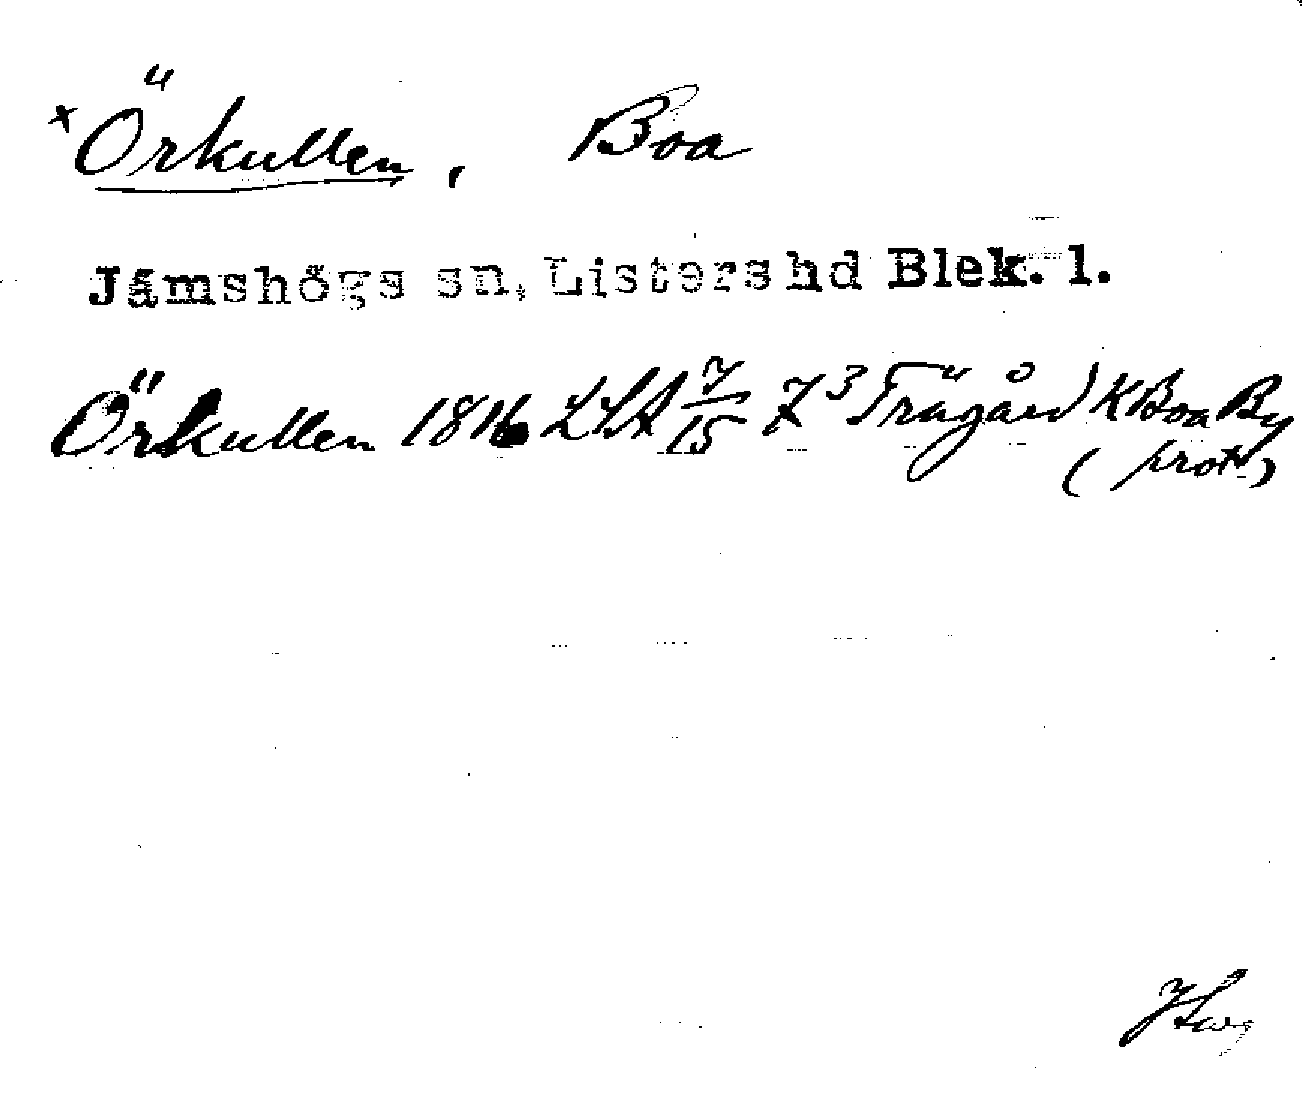 x Örkullen, Boa
Jämshögs sn, Listers hd Blek. l.
Örkullen 1816 LSA 7/15 Z³ Trägård K Boa By
(prot.)